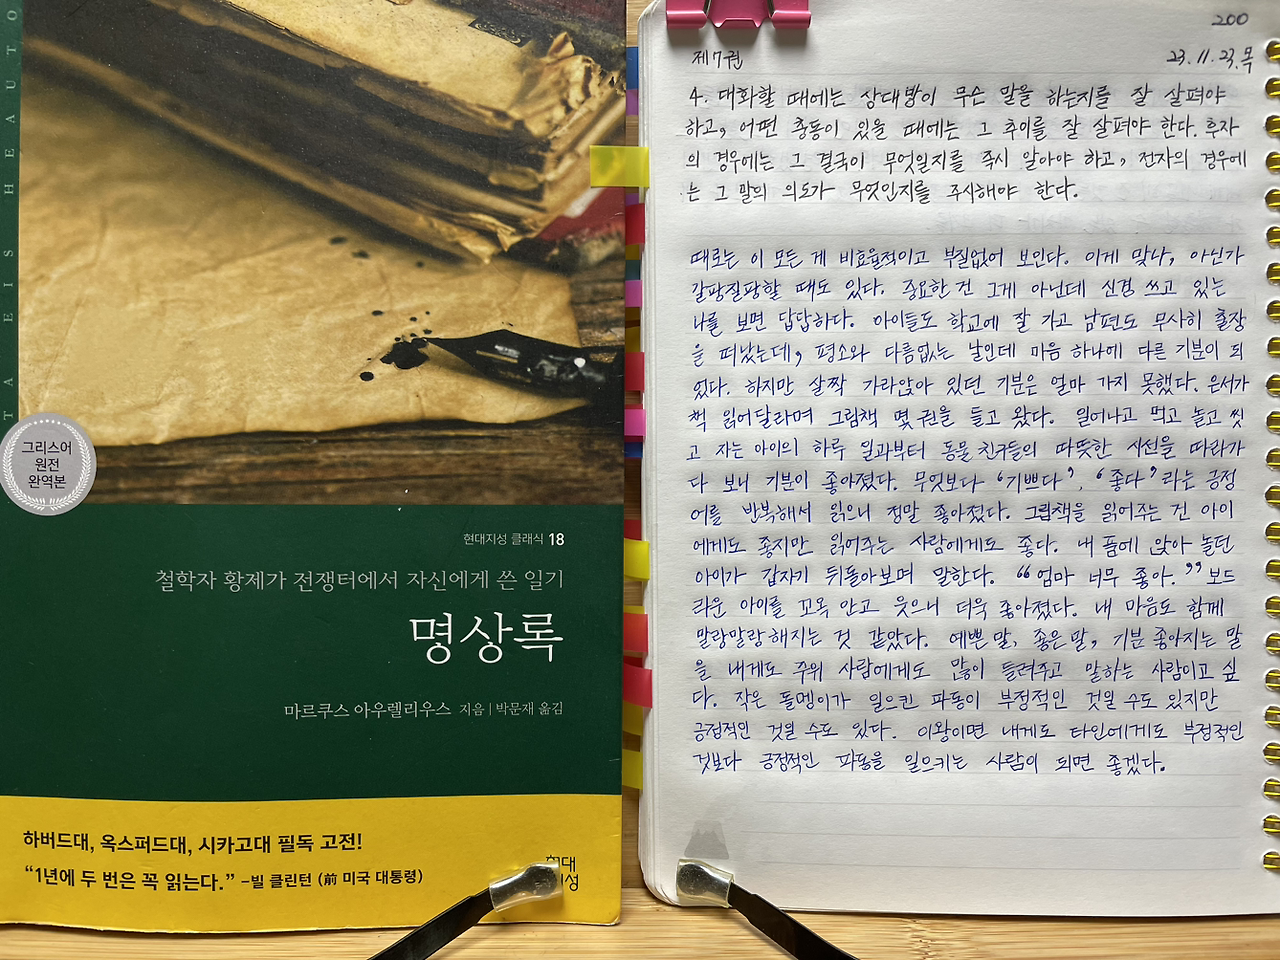 TA EIS HEAUTO
그리스어
원전
완역본
현대지성 클래식 18
철학자 황제가 전쟁터에서 자신에게 쓴 일기
명상록
마르쿠스 아우렐리우스 지음 | 박문재 옮김
하버드대, 옥스퍼드대, 시카고대 필독 고전!
“1년에 두 번은 꼭 읽는다.” -빌 클린턴 (前 미국 대통령)
200
제7권 23.11.23.목
4. 대화할 때에는 상대방이 무슨 말을 하는지를 잘 살펴야
하고, 어떤 충동이 있을 때에는 그 추이를 잘 살펴야 한다. 후자
의 경우에는 그 결국이 무엇일지를 즉시 알아야 하고, 전자의 경우에
는 그 말의 의도가 무엇인지를 주시해야 한다.
때로는 이 모든 게 비효율적이고 부질없어 보인다. 이게 맞나, 아닌가
갈팡질팡할 때도 있다. 중요한 건 그게 아닌데 신경 쓰고 있는
나를 보면 답답하다. 아이들도 학교에 잘 가고 남편도 무사히 출장
을 떠났는데, 평소와 다름없는 날인데 마음 하나에 다른 기분이 되
었다. 하지만 살짝 가라앉아 있던 기분은 얼마 가지 못했다. 은서가
책 읽어달라며 그림책 몇 권을 들고 왔다. 일어나고 먹고 놀고 씻
고 자는 아이의 하루 일과부터 동물 친구들의 따뜻한 시선을 따라가
다 보니 기분이 좋아졌다. 무엇보다 ‘기쁘다’, ‘좋다’ 라는 긍정
어를 반복해서 읽으니 정말 좋아졌다. 그림책을 읽어주는 건 아이
에게도 좋지만 읽어주는 사람에게도 좋다. 내 품에 앉아 놀던
아이가 갑자기 뒤돌아보며 말한다. “엄마 너무 좋아.” 보드
라운 아이를 꼬옥 안고 웃으니 더욱 좋아졌다. 내 마음도 함께
말랑말랑해지는 것 같았다. 예쁜 말, 좋은 말, 기분 좋아지는 말
을 내게도 주위 사람에게도 많이 들려주고 말하는 사람이고 싶
다. 작은 돌멩이가 일으킨 파동이 부정적인 것일 수도 있지만
긍정적인 것일 수도 있다. 이왕이면 내게도 타인에게도 부정적인
것보다 긍정적인 파동을 일으키는 사람이 되면 좋겠다.